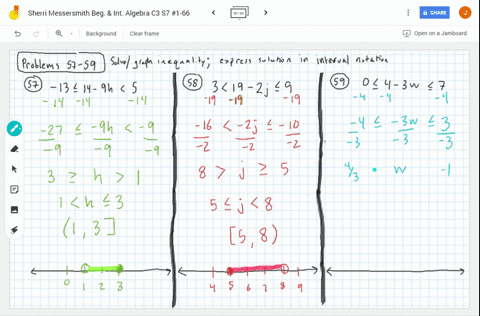 Sherri Messersmith Beg. & Int. Algebra C3 S7 #1-66
SHARE
Background
Clear frame
Open on a Jamboard
Problems 57-59 Solve/graph inequality; express solution in interval notation
57 -13 ≤ 14 - 9h < 5
-14 -14 -14
-27 ≤ -9h < -9
-9 -9 -9
3 ≥ h > 1
1 < h ≤ 3
(1, 3]
0 1 2 3
58 3 < 19 - 2j ≤ 9
-19 -19 -19
-16 < -2j ≤ -10
-2 -2 -2
8 > j ≥ 5
5 ≤ j < 8
[5, 8)
4 5 6 7 8 9
59 0 ≤ 4 - 3w ≤ 7
-4 -4 -4
-4 ≤ -3w ≤ 3
-3 -3 -3
4/3 w -1